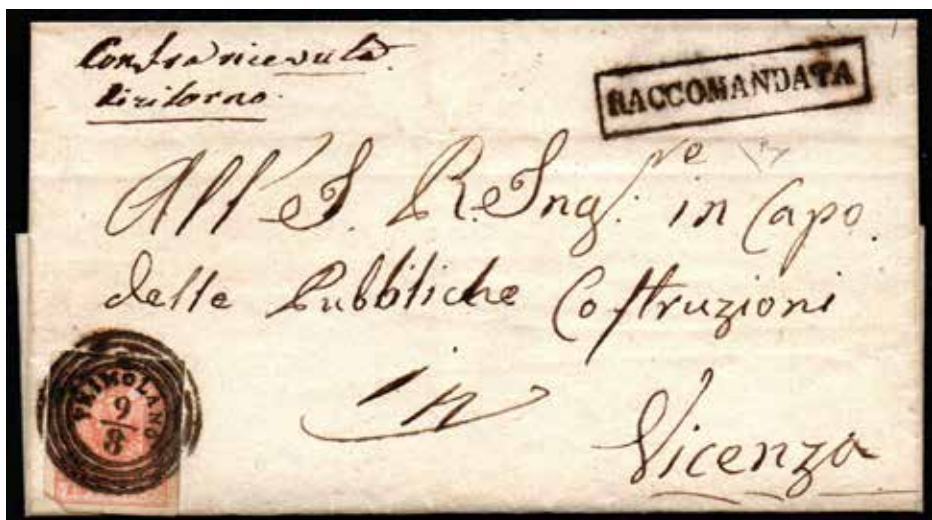 Contra ricevuta
di ritorno.
RACCOMANDATA
All' I. R. Ing.re in Capo
delle Pubbliche Costruzioni
in
Vicenza
PRIMOLANO
9
8